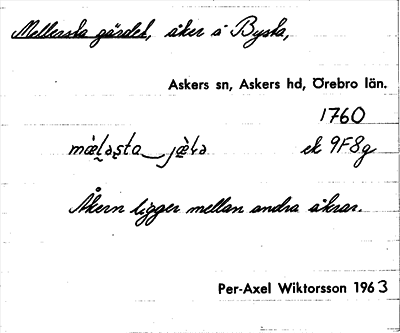 Mellersta gärdet, åker å Bysta,
Askers sn, Askers hd, Örebro län.
1760
ek 9F8g
Åkern ligger mellan andra åkrar.
Per-Axel Wiktorsson 1963